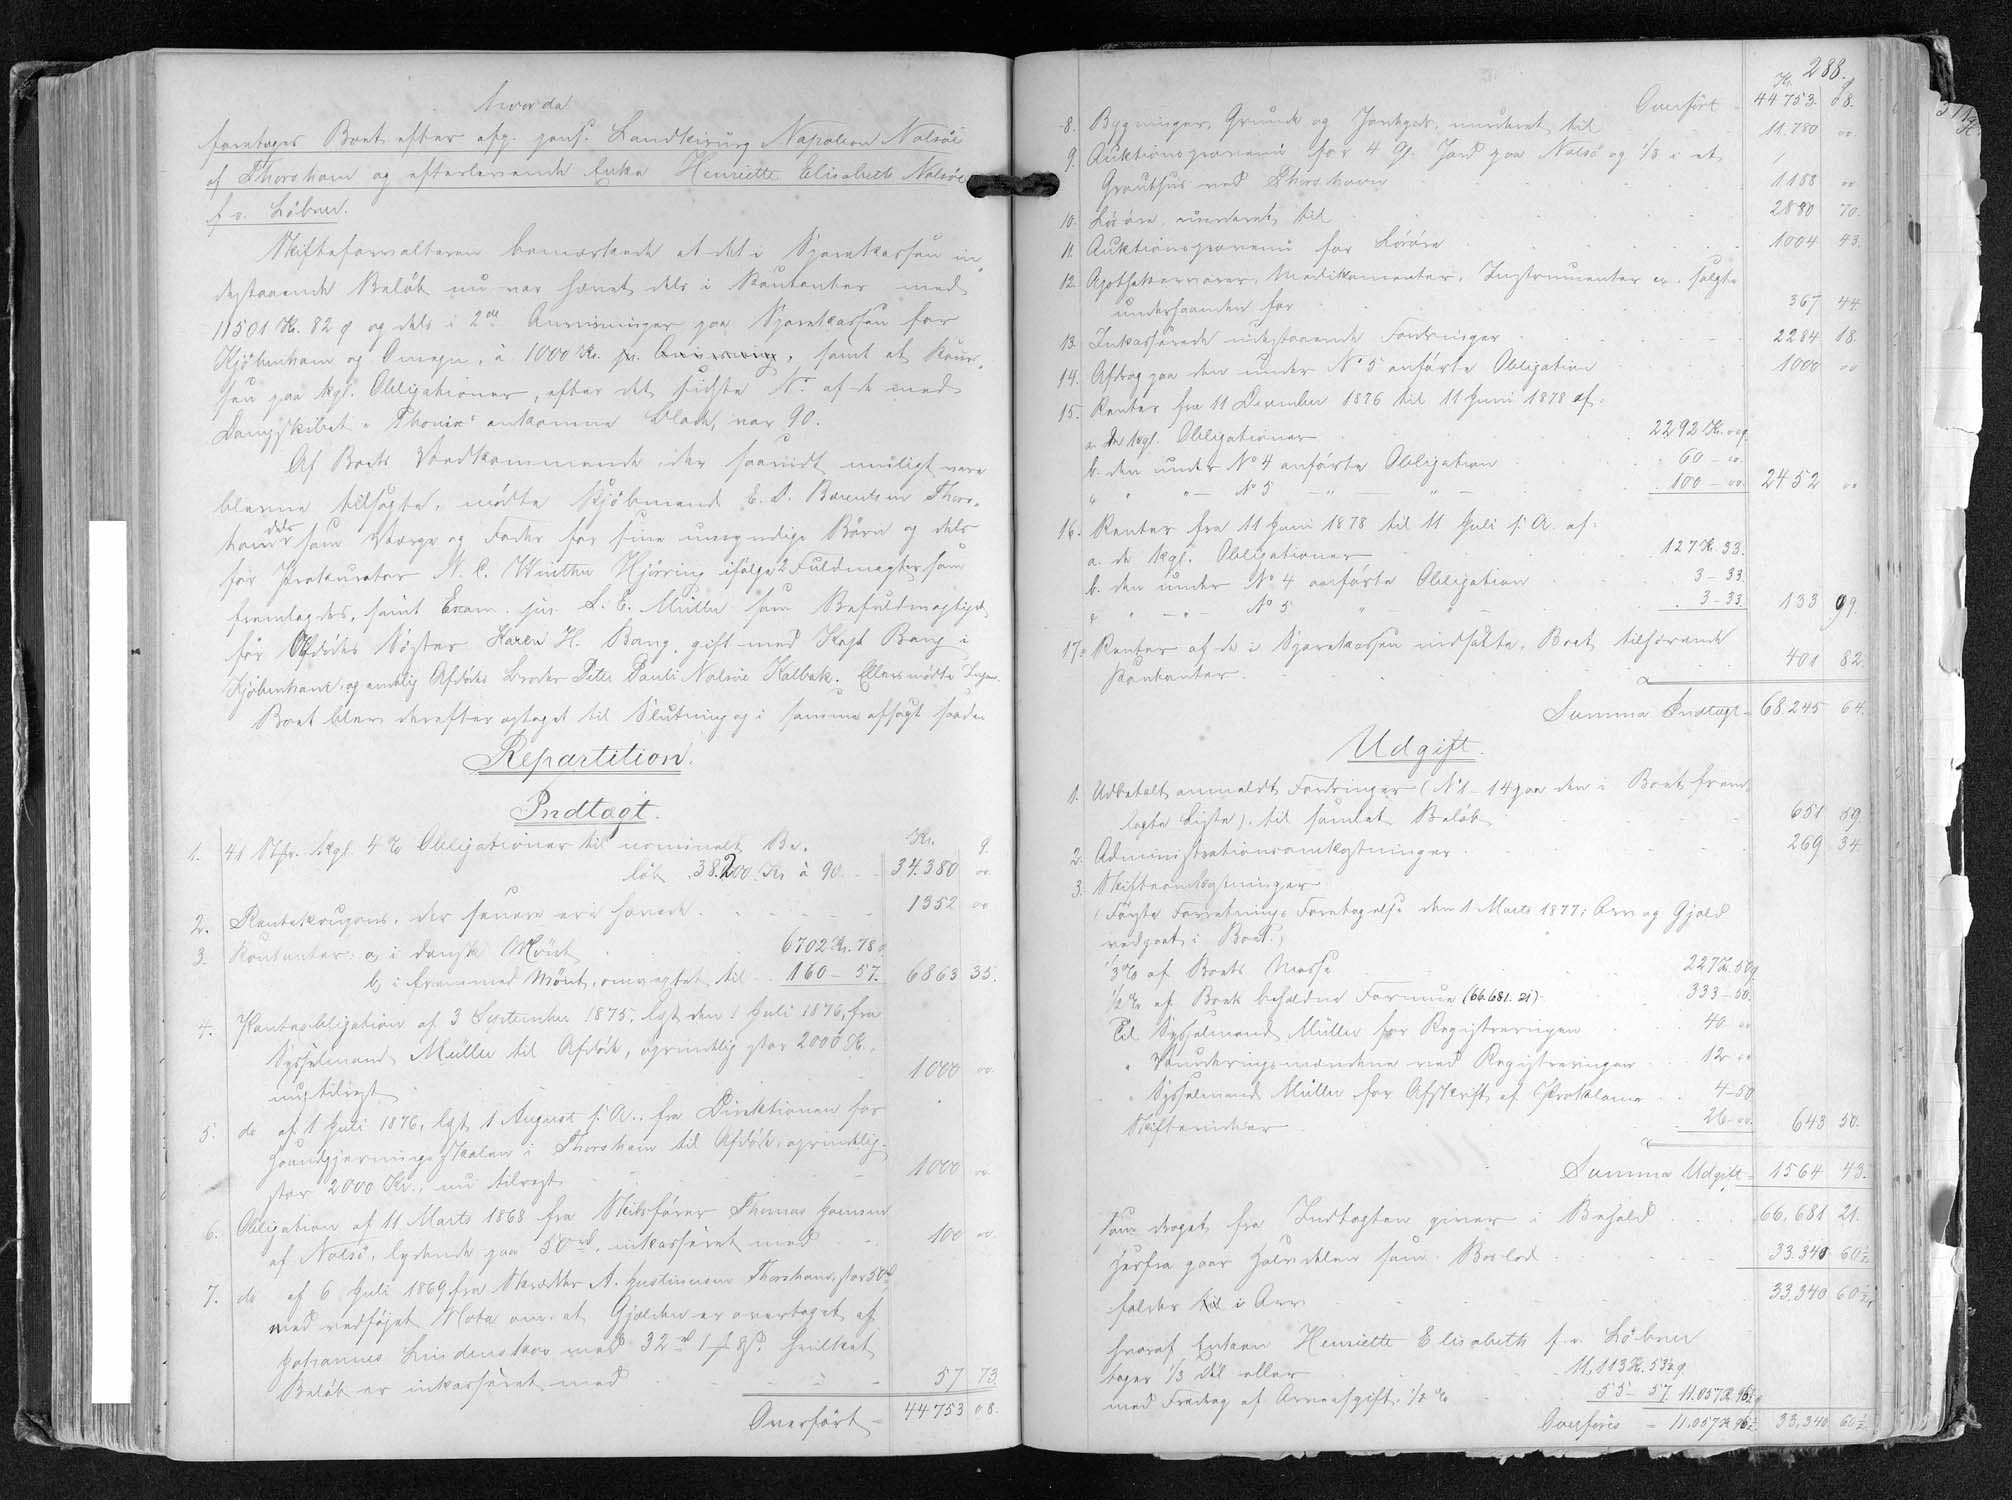 hvorda
foretoges Boet efter afg. pens. Landkirurg Napoleon Nolsöe
af Thorshavn og efterlevende Enke Henriette Elisabeth Nolsöe
f. v. Löbner.
Skifteforvalteren bemærkede at det i Sparekassen in=
destaaende Beløb nu var hævet dels i Kontanter med
11501 Kr. 82 Ø og dels i 2de Anvisninger paa Sparekassen for
Kjöbenhavn og Omegn, à 1000 Kr. pr. Anvisning, samt at Kour=
sen paa kgl. Obligationer, efter det sidste Nr. af de med
Dampskibet "Thorunn" ankomne Blade, var 90.
Af Boets Vedkommende, der saavidt muligt vare
blevne tilsagte, mødte Kjöbmand E. S. Bærentsen Thors=
havn dels som Værge og Fader for sine umyndige Børn og dels
for Prokurator N. C. Winther Hjörring ifölge 2 Fuldmagter som
fremlagdes, samt Exam. jur. S. E. Müller som Befuldmægtiget
for Afdödes Söster Karen H. Bang, gift med Kapt Bang i
Kjöbenhavn, og endelig Afdödes Broder Peter Pauli Nolsöe Kalbak. Ellers mödte Ingen.
Boet blev derefter optaget til Slutning og i samme afsagt saadan
Repartition.
Indtægt.
Kr. Ø
1. 41 Stk. kgl. 4 % Obligationer til nominelt Be=
löb 38.200 Kr. à 90 - 34.380 00.
2. Rentekoupons, der senere ere hævede 1352 00
3. Kontanter: a, i dansk Mönt 6702 Kr. 78 Ø
b, i fremmed Mönt, omvexlet til 160 - 57. 6863 35.
4. Panteobligation af 3 September 1875, læst den 1 Juli 1876, fra
Sysselmand Müller til Afdöde, oprindelig stor 2000 Kr.,
nu tilrest 1000 00.
5. do af 1 Juli 1876, læst 1 August s. A., fra Direktionen for
Haandgjerningsskolen i Thorshavn til Afdöde, oprindelig
stor 2000 Kr., nu tilrest 1000 00
6. Obligation af 11 Marts 1868 fra Skibsförer Thomas Joensen
af Nolsö, lydende paa 50 rd, inkasseret med 100 00.
7. do af 6 Juli 1869 fra Skrædder A. Justinussen Thorshavn, stor 50 rd
med vedföjet Nota om, at Gjælden er overtaget af
Johannes Lindenskov med 32 rd 1 f 8 s. hvilket
Beløb er inkasseret med 57 73
Overfört = 44753 08.
288.
Kr. Ø
Overfört = 44753. 08.
8. Bygninger, Grunde og Jordgods, vurderet til 11.780 00
9. Auktionsprovenü for 4 G. Jord paa Nolsö og 1/3 i et
Grouthus ved Thorshavn 1188 00
10. Lösöre, vurderet til 2880 70.
11. Auktionsprovenü for Lösöre 1004 43.
12. Apothekervarer, Medikamenter, Instrumenter er. solgte
underhaanden for 367 44.
13. Inkasserede udestaaende Fordringer 2284 18.
14. Afdrag paa den under No 5 anförte Obligation 1000 00
15. Renter fra 11 December 1876 til 11 Juni 1878 af:
a. de kgl. Obligationer 2292 Kr. 00 Ø
b. den under No 4 anförte Obligation 60 - 00.
c " " - No 5 - " - " - 100 - 00. 2452 00
16. Renter fra 11 Juni 1878 til 11 Juli s. A. af:
a. de kgl. Obligationer 127 Kr. 33.
b. den under No 4 anförte Obligation 3 - 33.
c " - " - No 5 " - " - 3 - 33. 133 99.
17. Renter af de i Sparekassen indsatte, Boet tilhørende
Kontanter 401 82.
Summa Indtægt = 68.245 64.
Udgift.
1. Udbetalt anmeldte Fordringer (No 1 - 14 paa den i Boet frem=
lagte Liste) til samlet Belöb 651 59
2. Administrationsomkostninger 269 34.
3. Skifteomkostninger
(Første Forretnings Foretagelse den 1 Marts 1877; Arv og Gjeld
vedgaaet i Boet.)
1/3 % af Boets Masse 227 Kr. 50 Ø
1/2 % af Boets beholdne Formue (66.681. 21) 333 - 50.
Til Sysselmand Müller for Registreringen 40 - 00
" Vurderingsmændene ved Registreringen 12 - 00
" Sysselmand Müller for Afskrift af Proklama 4 - 50
Skifte 26 - 00. 643 50.
Summa Udgift = 1564 43.
som draget fra Indtægten giver i Behold 66,681 21.
Herfra gaar Halvdelen som Boslod 33.340 60½
falder til i Arv 33,340 60½,
hvoraf Enken Henriette Elisabeth f. v. Löbner
tager 1/3 Del eller 11,113 Kr. 53½ Ø
med Fradrag af Arveafgift, 1/2 % 55 - 57. 11.057 Kr 96½ Ø
Overføres = 11.057 Kr 96½ 33,340 60½